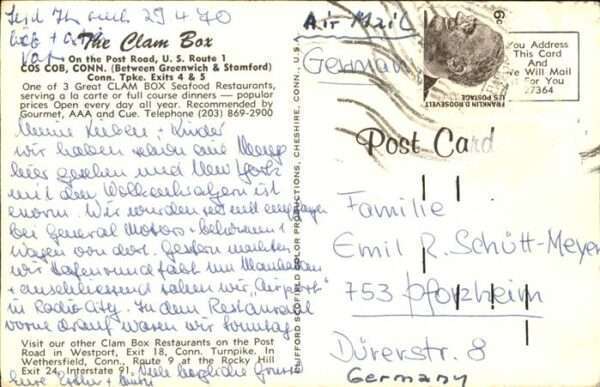 29.4.70
The Clam Box
On the Post Road, U. S. Route 1
COS COB, CONN. (Between Greenwich & Stamford)
Conn. Tpke. Exits 4 & 5
One of 3 Great CLAM BOX Seafood Restaurants,
serving a la carte or full course dinners — popular
prices Open every day all year. Recommended by
Gourmet, AAA and Cue. Telephone (203) 869-2900
Meine Lieben + Kinder
wir haben schon eine Menge
hier gesehen und New York
mit den Wolkenkratzern ist
enorm. Wir wurden
bei General Motors +
Wagen von dort. Gestern machten
wir Hafenrundfahrt um Manhattan
+ anschliessend sahen wir „Airport“
in Radio City. In dem Restaurant
vorne drauf waren wir Sonntag
Visit our other Clam Box Restaurants on the Post
Road in Westport, Exit 18, Conn. Turnpike. In
Wethersfield, Conn., Route 9 at the Rocky Hill
Exit 24, Interstate 91.
Viele herzliche Grüsse
CLIFFORD SCOFIELD COLOR PRODUCTIONS, CHESHIRE, CONN. U.S.A.
Air Mail
Germany
6c
FRANKLIN D. ROOSEVELT
U.S. POSTAGE
You Address
This Card
And
We Will Mail
For You
27364
Post Card
Familie
Emil R. Schütt-Meyer
753 Pforzheim
Dürerstr. 8
Germany